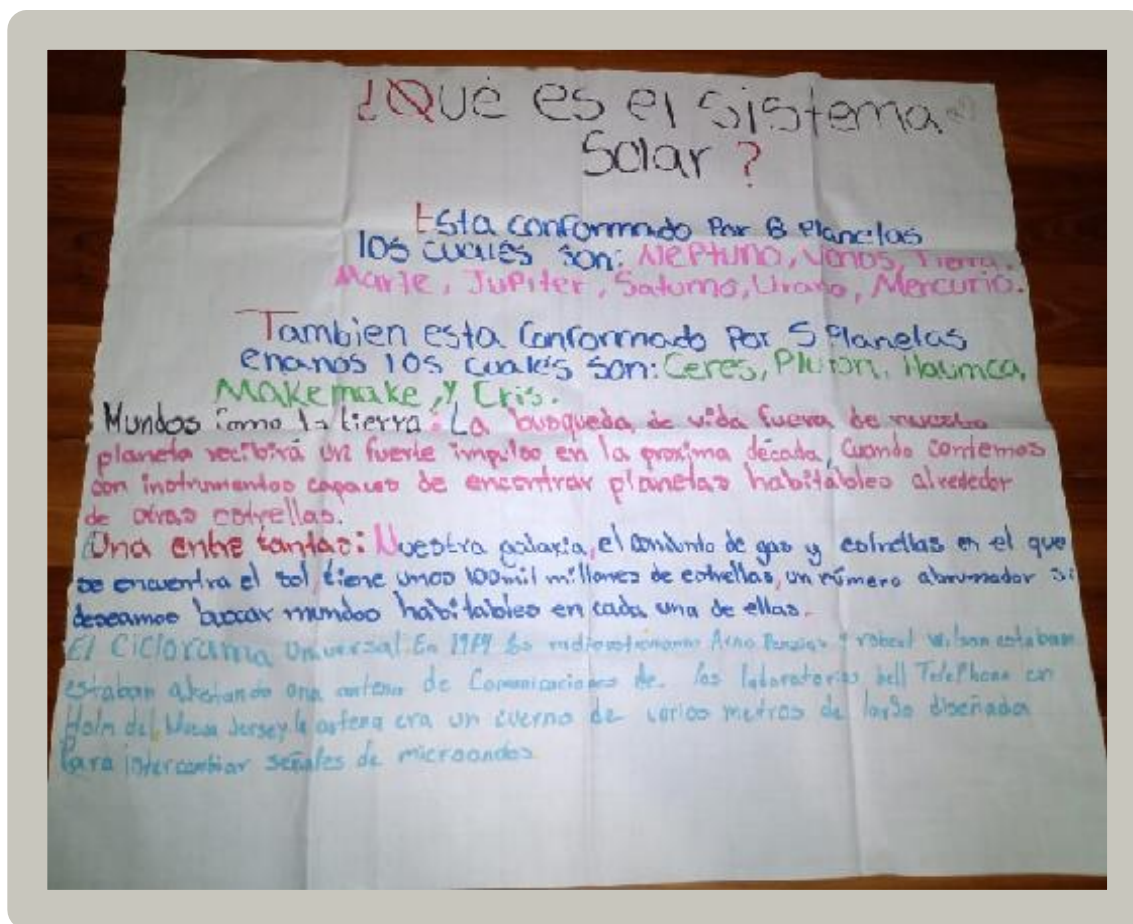 ¿Qué es el sistema
Solar?
Esta conformado Por 8 Planetas
los cuales son: Neptuno, Venos, Tierra,
Marte, Jupiter, Saturno, Urano, Mercurio.
Tambien esta Conformado Por 5 Planetas
enanos los cuales son: Ceres, Pluton, Haumea,
Makemake, Y Eris.
Mundos como la tierra: La busqueda de vida fuera de nuestro
planeta recibirá un fuerte impulso en la proxima década, Cuando contemos
con instrumentos capaces de encontrar planetas habitábles alrededor
de otras estrellas.
Una entre tantas: Nuestra galaxia, el conjunto de gas y estrellas en el que
se encuentra el sol, tiene unos 100 mil millones de estrellas, un número abrumador si
deseamos buscar mundos habitables en cada una de ellas.
El Ciclorama Universal. En los Arno Penzias y Wilson estaban
estaban una antena de Comunicaciones de los laboratorios bell TelePhone en
Holm del Nueva Jersey la antena era un cuerno de varios metros de largo diseñada
Para intercambiar señales de microondas